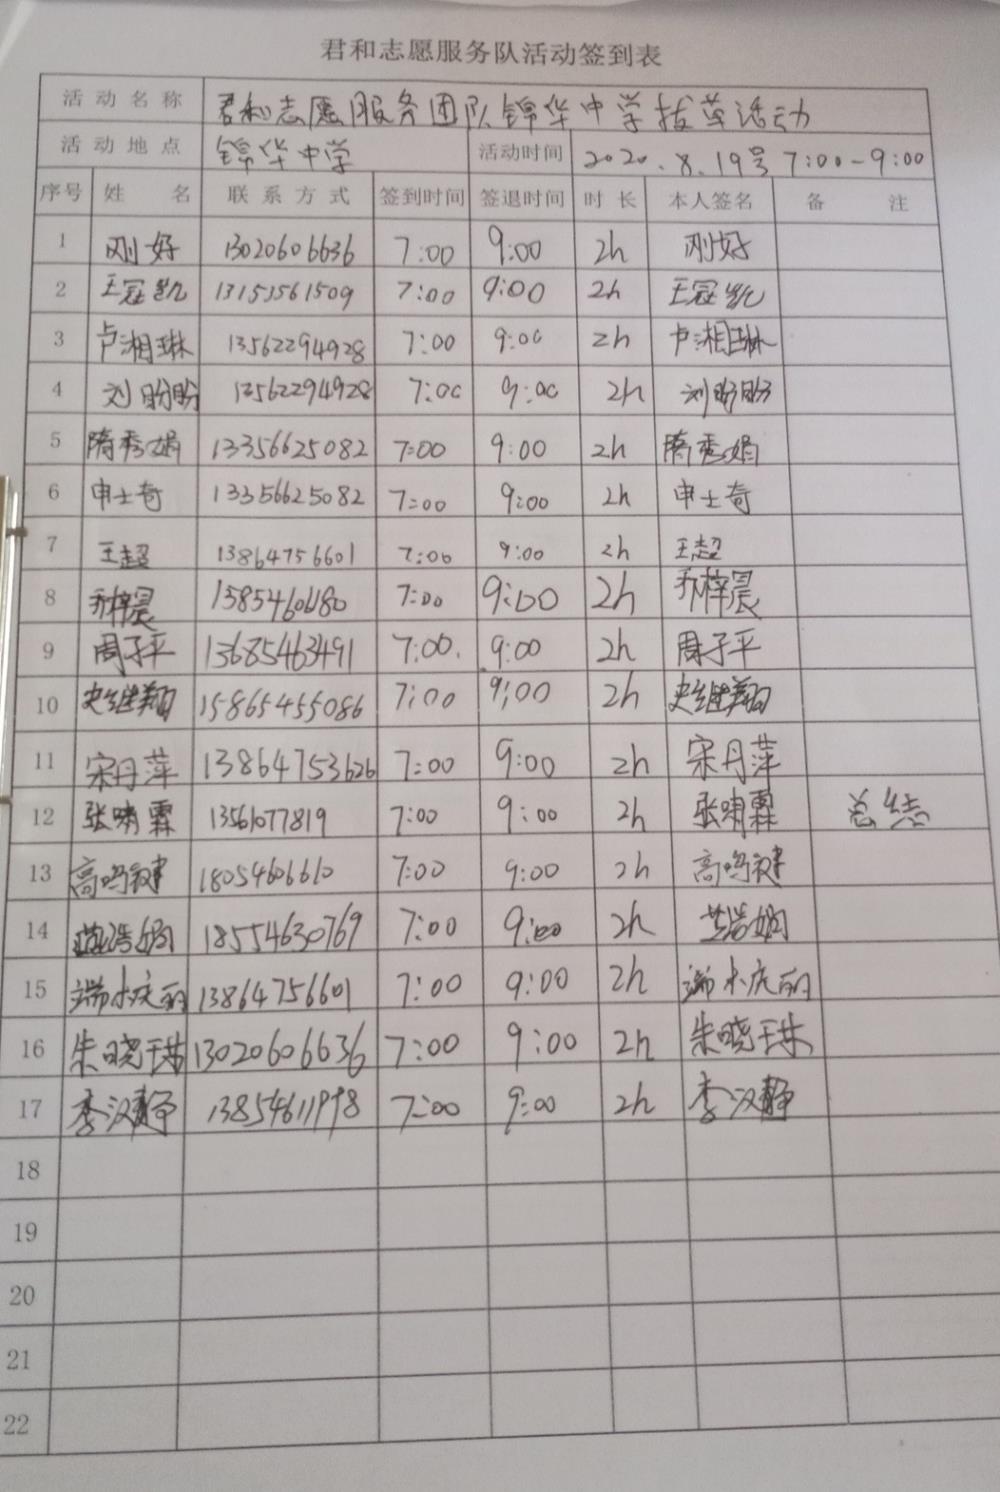 君和志愿服务队活动签到表
活动名称 君和志愿服务团队锦华中学拔草活动
活动地点 锦华中学 活动时间 2020.8.19号 7:00-9:00
序号 姓名 联系方式 签到时间 签退时间 时长 本人签名 备注
1 刚好 13020606636 7:00 9:00 2h 刚好
2 王冠凯 13153561509 7:00 9:00 2h 王冠凯
3 卢湘琳 13562294928 7:00 9:00 2h 卢湘琳
4 刘盼盼 13562294928 7:00 9:00 2h 刘盼盼
5 隋秀娟 13356625082 7:00 9:00 2h 隋秀娟
6 申士奇 13356625082 7:00 9:00 2h 申士奇
7 王超 13864756601 7:00 9:00 2h 王超
8 乔梓晨 7:00 9:00 2h 乔梓晨
9 周子平 13685463491 7:00 9:00 2h 周子平
10 史继翔 15865455086 7:00 9:00 2h 史继翔
11 宋丹萍 13864753626 7:00 9:00 2h 宋丹萍
12 张啸霖 13561077819 7:00 9:00 2h 张啸霖 总结
13 高鸣键 18054606610 7:00 9:00 2h 高鸣键
14 18554630769 7:00 9:00 2h
15 端木庆丽 13864756601 7:00 9:00 2h 端木庆丽
16 朱晓琳 13020606636 7:00 9:00 2h 朱晓琳
17 李汉静 13854611998 7:00 9:00 2h 李汉静
18
19
20
21
22